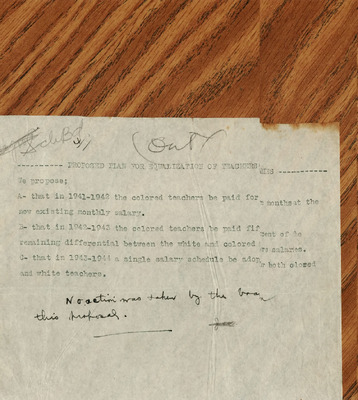 Sch Bd
(Out)
--------- PROPOSED PLAN FOR EQUALIZATION OF TEACHERS IES -----
We propose;
A- that in 1941-1942 the colored teachers be paid for months at the
now existing monthly salary.
B- that in 1942-1943 the colored teachers be paid fif cent of he
remaining differential between the white and colored salares.
C- that in 1943-1944 a single salary schedule be adop r both clored
and white teachers.
No action was taken by the
this proposal.